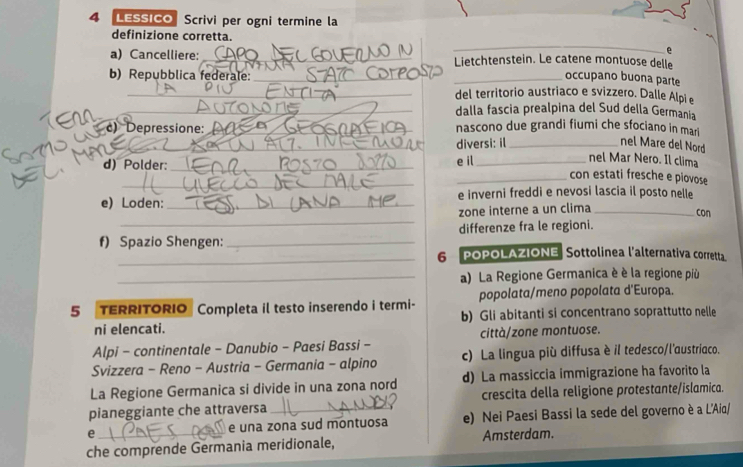 4 LESSICO Scrivi per ogni termine la
definizione corretta.
a) Cancelliere: CAPO DEL GOVERNO IN
GERMANIA
b) Repubblica federale: STATO COMPOSTO
DA PIÙ ENTITÀ
AUTONOME
c) Depressione: AREA GEOGRAFICA
ALT. INFERIORE
TERR.
SOTTO
DEL. MARE
d) Polder: TERR. POSTO SOTTO
IL LIVELLO DEL MARE
e) Loden: TESS. DI LANA
f) Spazio Shengen:
5 TERRITORIO Completa il testo inserendo i termi-
ni elencati.
Alpi – continentale – Danubio – Paesi Bassi –
Svizzera – Reno – Austria – Germania – alpino
La Regione Germanica si divide in una zona nord
pianeggiante che attraversa IL
e I PAES e una zona sud montuosa
che comprende Germania meridionale,
e
Lietchtenstein. Le catene montuose delle
occupano buona parte
del territorio austriaco e svizzero. Dalle Alpi e
dalla fascia prealpina del Sud della Germania
nascono due grandi fiumi che sfociano in mari
diversi: il nel Mare del Nord
e il nel Mar Nero. Il clima
con estati fresche e piovose
e inverni freddi e nevosi lascia il posto nelle
zone interne a un clima con
differenze fra le regioni.
6 POPOLAZIONE Sottolinea l'alternativa corretta.
a) La Regione Germanica è è la regione più
popolata/meno popolata d'Europa.
b) Gli abitanti si concentrano soprattutto nelle
città/zone montuose.
c) La lingua più diffusa è il tedesco/l'austriaco.
d) La massiccia immigrazione ha favorito la
crescita della religione protestante/islamica.
e) Nei Paesi Bassi la sede del governo è a L'Aia/
Amsterdam.